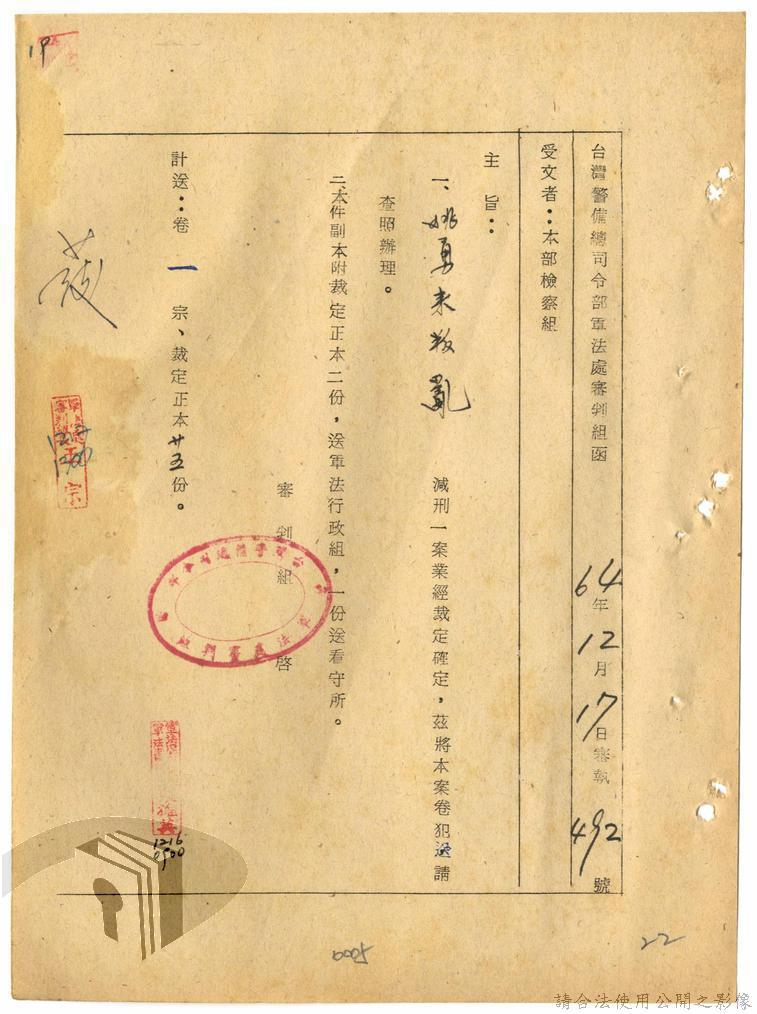 台灣警備總司令部軍法處審判組函 64年12月17日審執492號
受文者：本部檢察組
主旨：
一、姚勇來叛亂 減刑一案業經裁定確定，茲將本案卷犯送請
查照辦理。
二、本件副本附裁定正本二份，送軍法行政組，一份送看守所。
審判組 啓
計送：卷一宗、裁定正本廿五份。
19
1216
0900
0005
22
請合法使用公開之影像